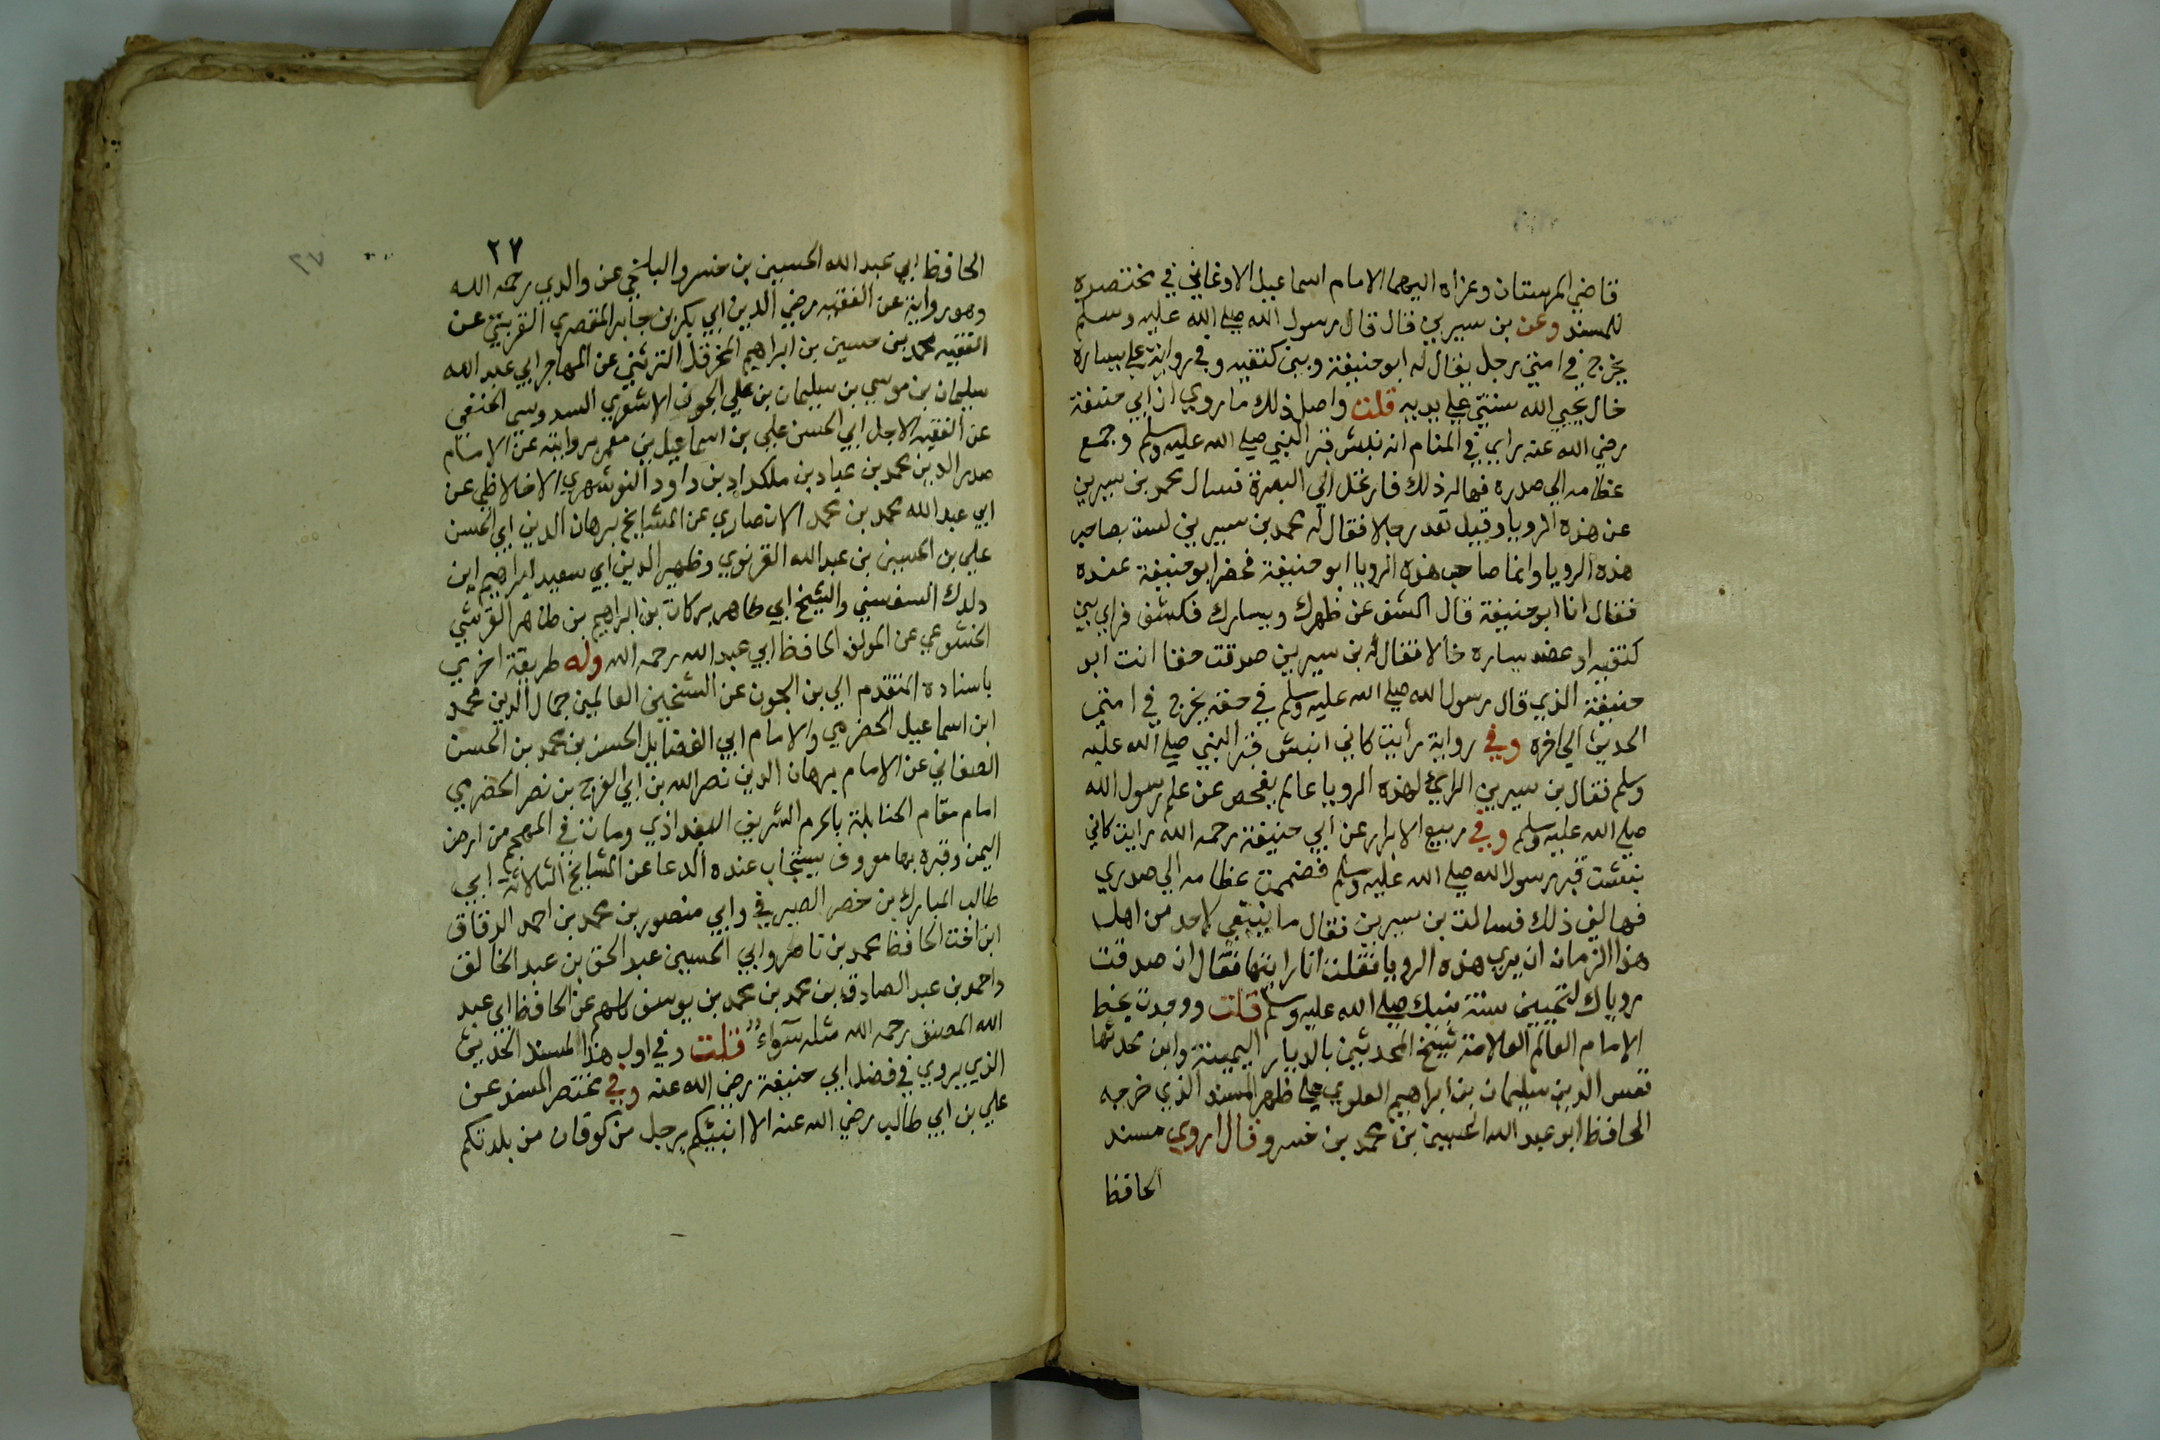 قاضي المرستان وعزاه اليهما الامام اسماعيل الاوغاني في مختصره
للمسند وعن بن سيرين قال قال رسول الله صلى الله عليه وسلم
يخرج في امتي رجل يقال له ابو حنيفة وبين كتفيه وفي رواية على يساره
خال يحيي الله سنتي على يديه قلت واصل ذلك ما روي ان ابي حنيفة
رضي الله عنه راي في المنام انه نبش قبر النبي صلى الله عليه وسلم وجمع
عظامه الي صدره فهاله ذلك فارتحل الي البصرة فسال محمد بن سيرين
عن هذه الرويا وقيل نفد رجلا فقال له محمد بن سيرين لست بصاحب
هذه الرويا وانما صاحب هذه الرويا ابو حنيفة فحضر ابو حنيفة عنده
فقال انا ابو حنيفة قال اكشف عن ظهرك ويسارك فكشف فراي بين
كتفيه او عضد يساره خالا فقال له بن سيرين صدقت حقا انت ابو
حنيفة الذي قال رسول الله صلى الله عليه وسلم في حقه يخرج في امتي
الحديث الي اخره وفي رواية رأيت كاني انبش قبر النبي صلى الله عليه
وسلم فقال بن سيرين الرائي لهذه الرويا عالم يفحص عن علم رسول الله
صلى الله عليه وسلم وفي ربيع الابرار عن ابي حنيفة رحمه الله رايت كاني
نبشت قبر رسول الله صلى الله عليه وسلم فضممت عظامه الي صدري
فهالني ذلك فسالت بن سيرين فقال ما ينبغي لاحد من اهل
هذا الزمان ان يري هذه الرويا فقلت انا رايتها فقال ان صدقت
روياك لتحيين سنة نبيك صلى الله عليه وسلم قلت ووجدت بخط
الامام العالم العلامة شيخ المحدثين بالديار اليمنية وابن محدثها
نفيس الدين سليمان بن ابراهيم العلوي على ظهر المسند الذي خرجه
الحافظ ابو عبد الله الحسين بن محمد بن خسرو قال اروي مسند
الحافظ
٢٧
٢٧
الحافظ ابي عبد الله الحسين بن خسرو البلخي عن والدي رحمه الله
وهو رواية عن الفقيه رضي الدين ابي بكر بن جابر المقصري القريتي عن
الفقيه محمد بن حسين بن ابراهيم عن المهاجر ابي عبد الله
سليمان بن موسي بن سليمان بن علي الجون الاشعري السدوسي الحنفي
عن الفقيه الاجل ابي الحسن علي بن اسماعيل بن معمر بروايته عن الامام
صدر الدين محمد بن عباد بن ملكداد بن داود النوشهري الاخلاطي عن
ابي عبد الله محمد بن محمد الانصاري عن المشايخ برهان الدين ابي الحسن
علي بن الحسين بن عبد الله الغزنوي وظهير الدين ابي سعيد ابراهيم ابن
دلدك السفسيني والشيخ ابي طاهر بركات بن ابراهيم بن طاهر القرشي
الخشوعي عن المولف الحافظ ابي عبد الله رحمه الله وله طريقة اخري
باسناده المتقدم الي بن الجون عن الشيخين العالمين جمال الدين محمد
ابن اسماعيل الحضرمي والامام ابي الفضايل الحسن بن محمد بن الحسن
الصغاني عن الامام برهان الدين نصر الله بن ابي الفرج بن نصر الحضرمي
امام مقام الحنابلة بالحرم الشريف البغداذي ومات في المهجم من ارض
اليمن وقبره بها معروف يستجاب عنده الدعا عن المشايخ الثلاثة ابي
طالب المبارك بن خضر الصيرفي وابي منصور بن محمد بن احمد الدقاق
ابن اخت الحافظ محمد بن ناصر وابي الحسين عبد الحق بن عبد الخالق
واحمد بن عبد الصادق بن محمد بن محمد بن يوسف كلهم عن الحافظ ابي عبد
الله المصنف رحمه الله مثله سوآء قلت وفي اول هذا المسند الحديث
الذي يروي في فضل ابي حنيفة رضي الله عنه وفي مختصر المسند عن
علي بن ابي طالب رضي الله عنه الا انبئكم برجل من كوفان من بلدتكم